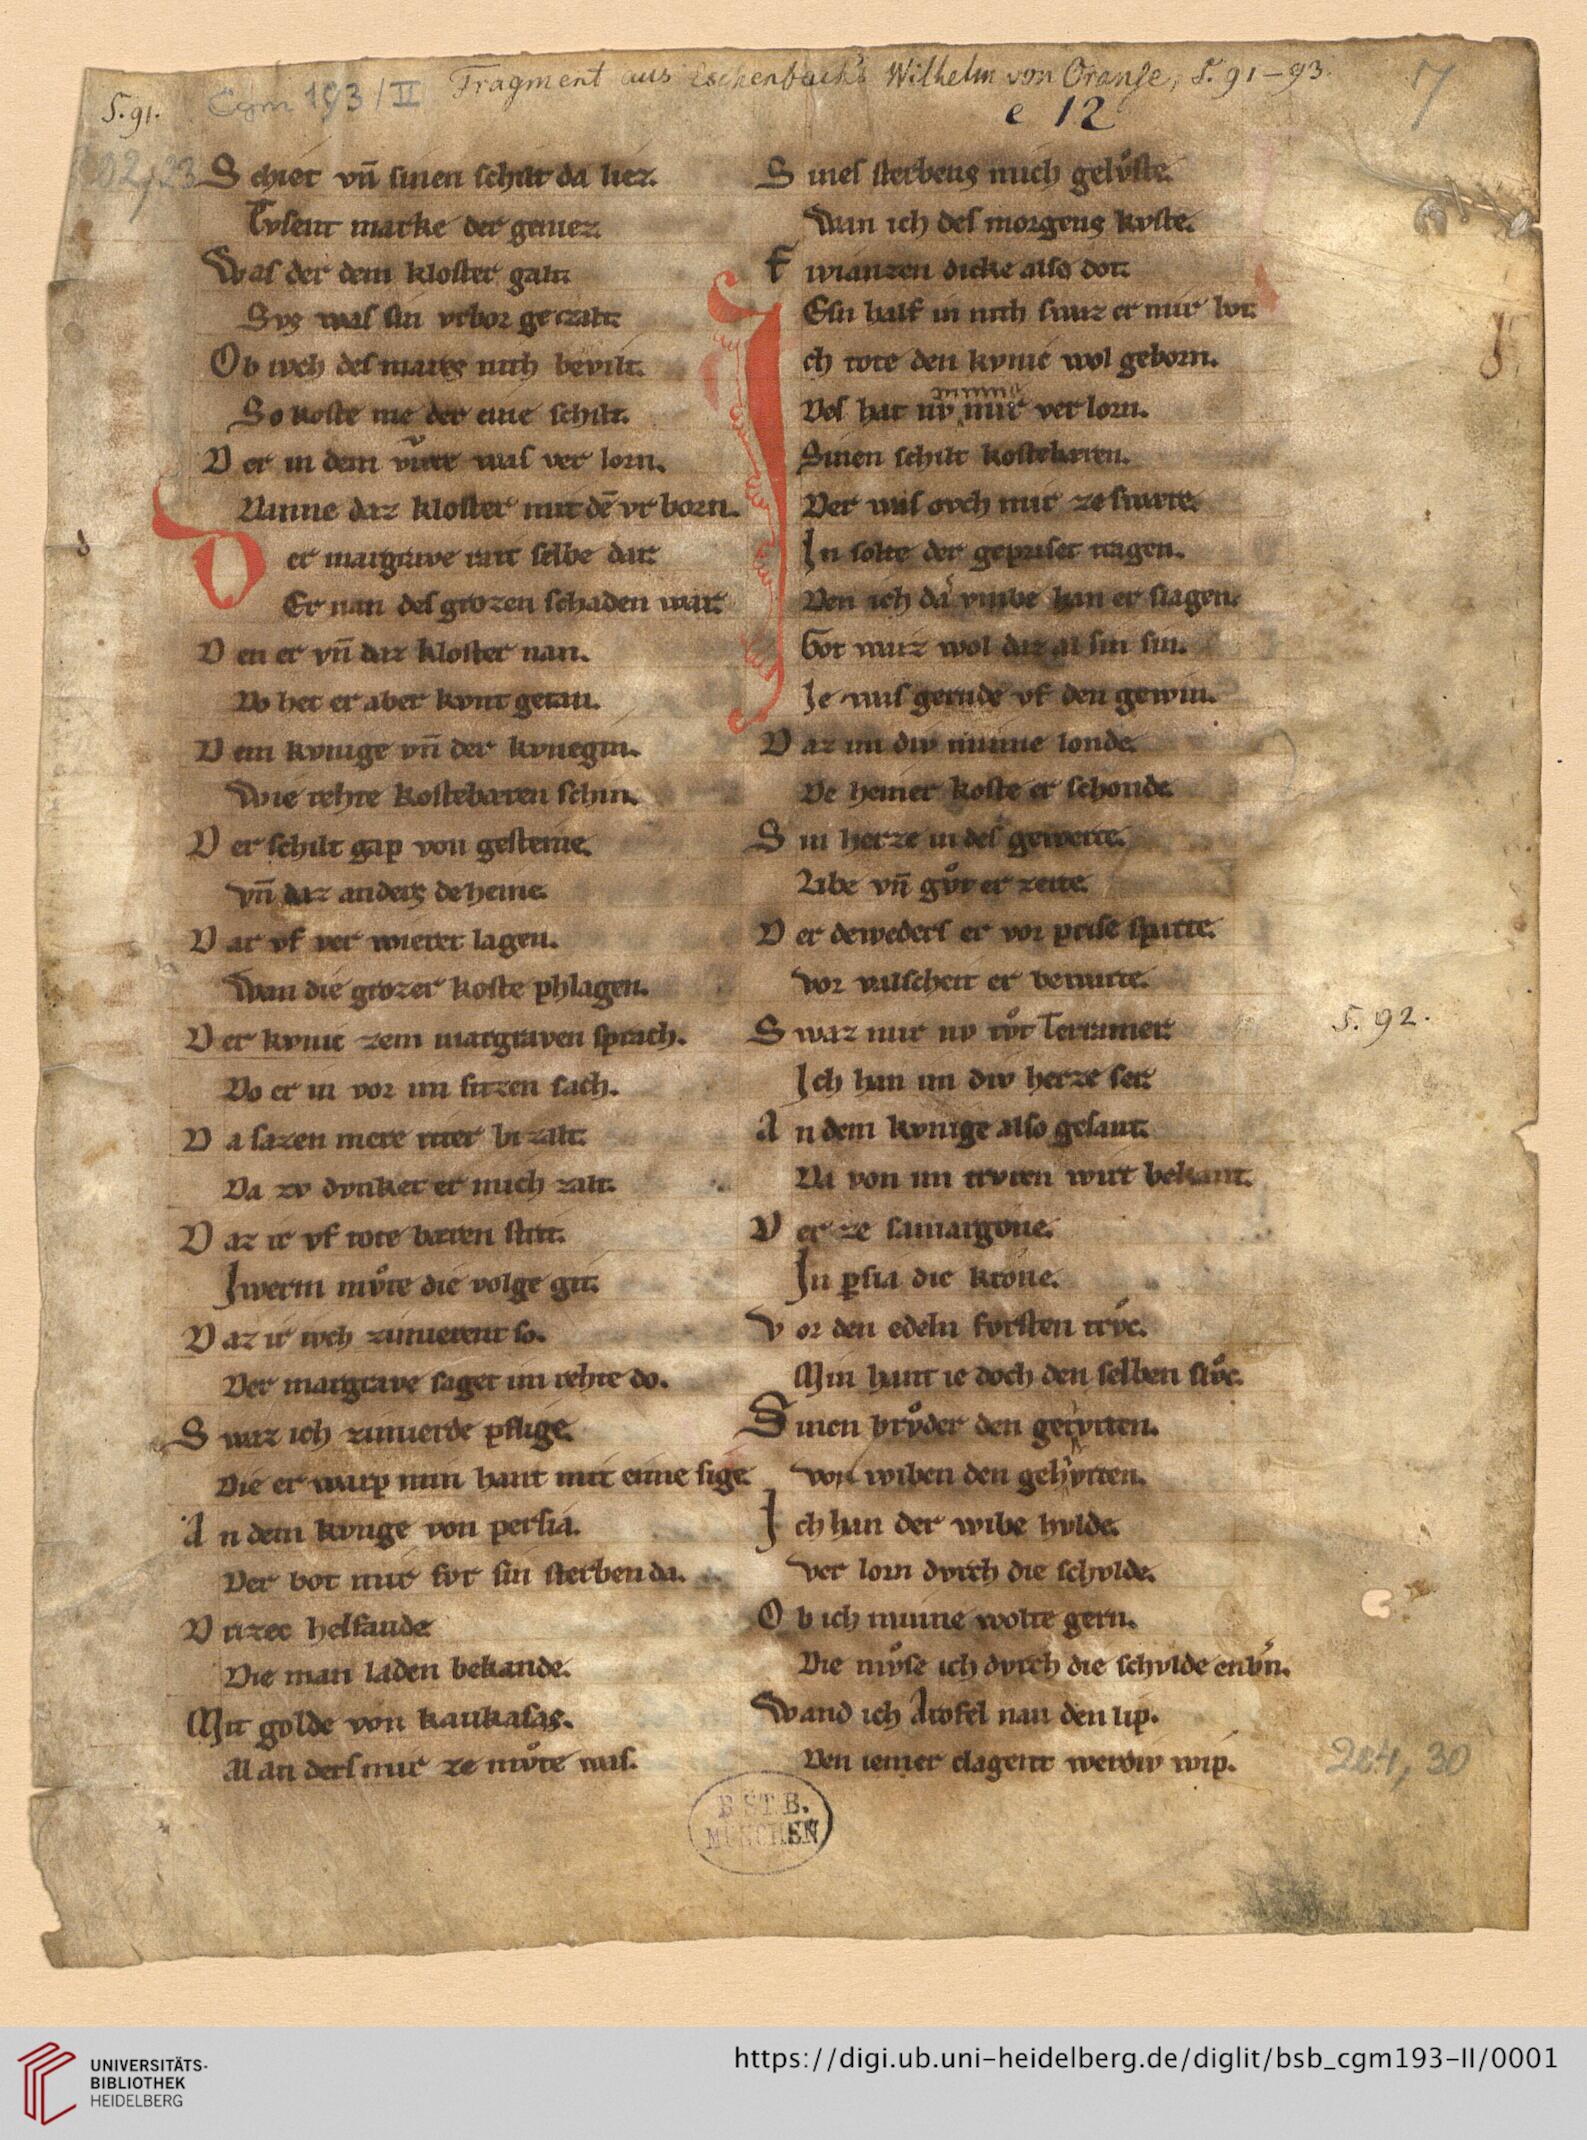 Fragment aus Eschenbach's Wilhelm von Oranse, S. 91–93.
S. 91.
Cgm 193/II
e 12
7
202,23
S chiet vn̄ sinen schilt da liez.
Tvsent marke der geniez
Was der dem kloster galt.
Svs was sin vrbor gezalt.
Ob iweh des mares niht bevilt.
So koste me der eine schilt.
D er in dem vͤure was ver lorn.
Danne daz kloster mit dē vrborn.
D er margrave reit selbe dar.
Er nan des grozen schaden war.
D en er vn̄ daz kloster nan.
Do het er aber kvnt getan.
D em kvnige vn̄ der kvnegin.
Wie rehte kostebæren schin.
D er schilt gap von gesteine.
vn̄ daz anders deheine.
D ar vf ver wieret lagen.
Wan die grozer koste phlagen.
D er kvnic zem margraven sprach.
Do er in vor im sitzen sach.
D a sazen mere riter bi zalt.
Da zv dvnket er mich zalt.
D az ir vf tote baren strit.
Iwerm mvͦte die volge git.
D az ir iwch zimierent so.
Der margrave saget im rehte do.
S waz ich zimierde pflige.
Die er warp min hant mit eime sige.
A n dem kvnge von persia.
Der bot mir fvr sin sterben da.
D rizec helfande.
Die man laden bekande.
Mit golde von kaukasas.
Al an ders mir ze mvͦte was.
S ines sterbens mich gelvͦste.
Wan ich des morgens kvste.
F wianzen dicke also dot.
Esn half in niht swaz er mir bot.
I ch tote den kvnic wol geborn.
Des hat nv minne mir ver lorn.
Sinen schilt kostebæren.
Der was ovch mir ze swære.
In solte der gepriset tragen.
Den ich da vmbe han er slagen.
Got weiz wol daz al sin sin.
Ie was gerade vf den gewin.
D az im div minne londe.
De heiner koste er schonde.
S in herze in des gewerte.
Libe vn̄ gvͦt er zerte.
D er dewederz er vor prise sparte.
vor valscheit er bewarte.
S waz mir nv tvͦt Terramer.
Ich han im div herze ser.
A n dem kvnige also gesant.
Da von im trvren wirt bekant.
D er ze samargone.
In ꝑsia die krone.
V or den edeln fvrsten trvͦc.
Min hant ie doch den selben slvͦc.
Sinen brvͦder den getvrten.
von wiben den gehvrten.
I ch han der wibe hvlde.
ver lorn dvrch die schvlde.
O b ich minne wolte gern.
Die mvͦse ich dvrch die schvlde enbern.
Wand ich Arofel nan den lip.
Den iemer clagent werdiv wip.
S. 92.
204,30
B.ST.B.
MÜNCHEN
UNIVERSITÄTS-
BIBLIOTHEK
HEIDELBERG
https://digi.ub.uni-heidelberg.de/diglit/bsb_cgm193-II/0001